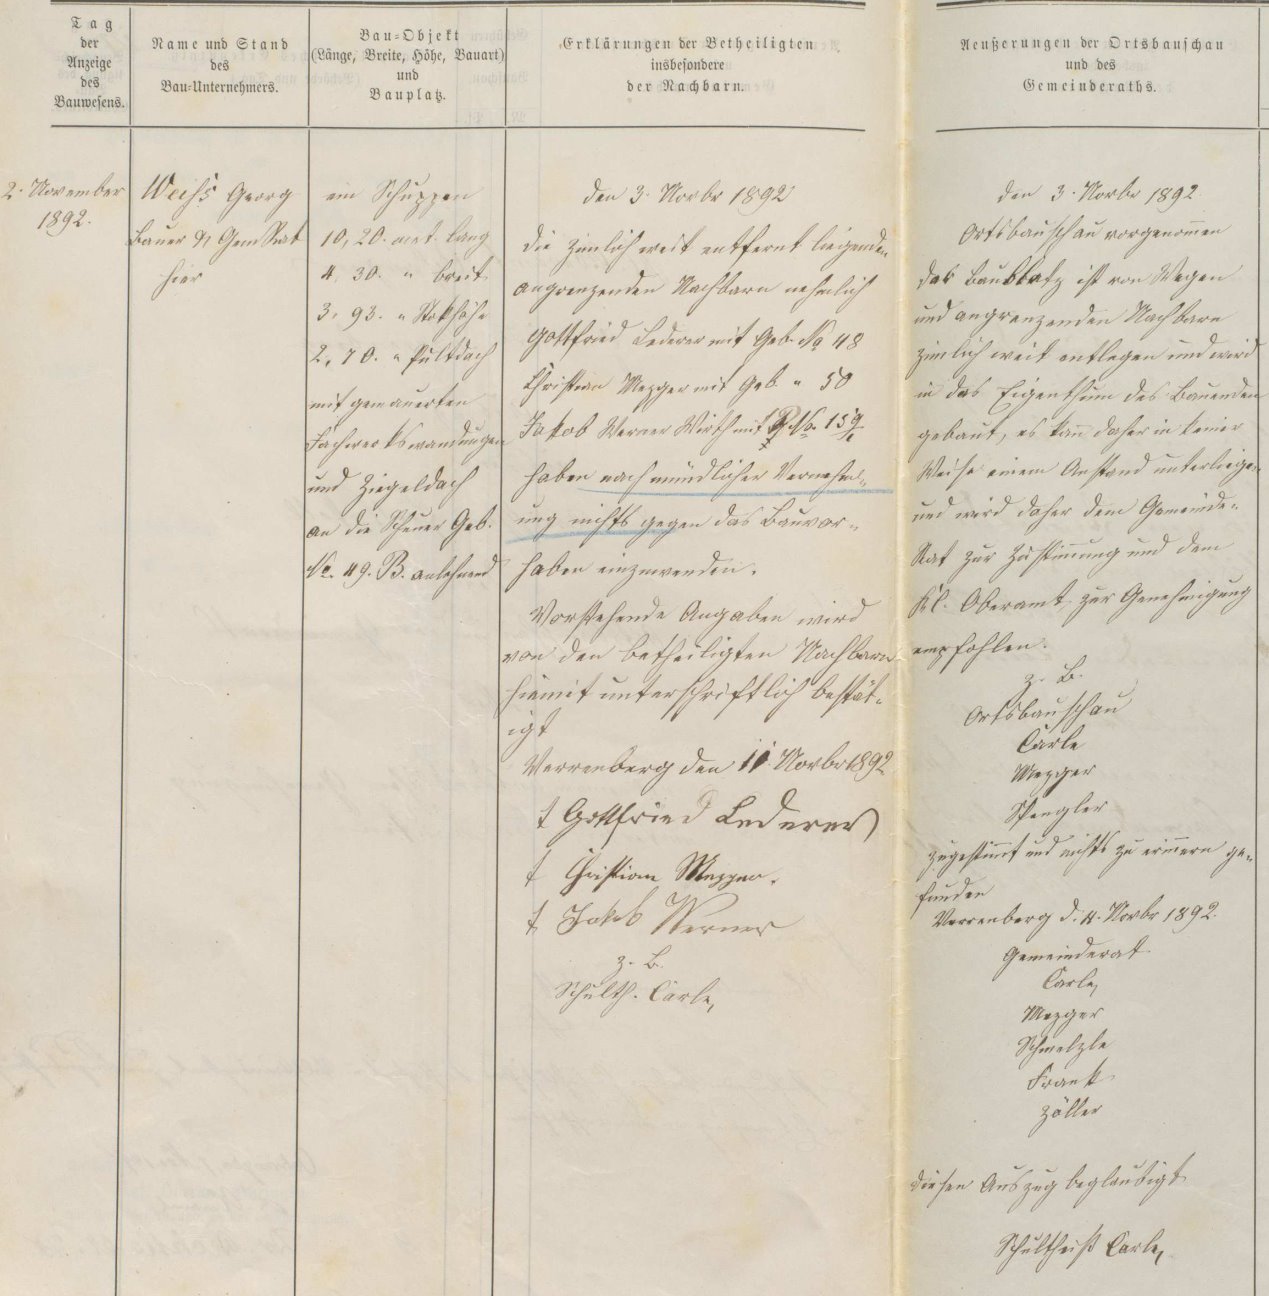 Tag
der
Anzeige
des
Bauwesens.
Name und Stand
des
Bau-Unternehmers.
Bau-Objekt
(Länge, Breite, Höhe, Bauart)
und
Bauplatz.
Erklärungen der Betheiligten
insbesondere
der Nachbarn.
Aeußerungen der Ortsbauschau
und des
Gemeinderaths.
2. November
1892.
Weihs Georg
Bauer & GemRat
hier
ein Schuppen
10,20. met. lang
4,30. " breit.
3,93. " Stokhöhe
2,70. " Pultdach
mit gemauerten
Fachwerkswandungen
und Ziegeldach
an die Scheuer Geb.
No. 49. B. anlehnend
den 3. Novbr 1892
die zimlich weit entfernt liegenden
angrenzenden Nachbarn nehmlich
Gottfried Lederer mit Geb. No 48
Christian Mezger mit Geb. " 50
Jakob Werner Wirth mit P. No. 159/1
haben nach mündlicher Vernehm-
ung nichts gegen das Bauvor-
haben einzuwenden.
Vorstehende Angaben wird
von den betheiligten Nachbarn
hiemit unterschriftlich bestät-
igt
Verrenberg den 11 Novbr 1892
† Gottfried Lederer
† Christian Mezger.
† Jakob Werner
z. B.
Schulth. Carle,
den 3. Novbr 1892.
Ortsbauschau vorgenommen
das Bauplatz ist von Wegen
und angrenzenden Nachbarn
zimlich weit entlegen und wird
in das Eigenthum des Bauenden
gebaut, es kann daher in keiner
Weise einem Anstand unterliegen
und wird daher dem Gemeinde-
Rat zur Zustimmung und dem
Kl. Oberamt zur Genehmigung
empfohlen.
z. B.
Ortsbauschau
Carle
Mezger
Spengler
zugestimmt und nichts zu erinnern ge-
funden
Verrenberg d. 11. Novbr 1892.
Gemeinderat
Carle,
Mezger
Schmelzle
Frank
Zöller
diesen Auszug beglaubigt
Schultheiß Carle,